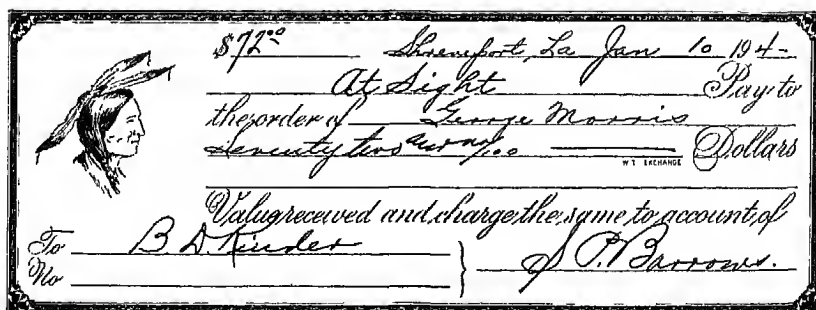 $72⁰⁰ Shreveport, La Jan 10 194-
At Sight Pay to
the order of George Morris
Seventy two and no/100 Dollars
W T EXCHANGE
Value received and charge the same to account of
To B. D. Kinder
No S P. Barrows.